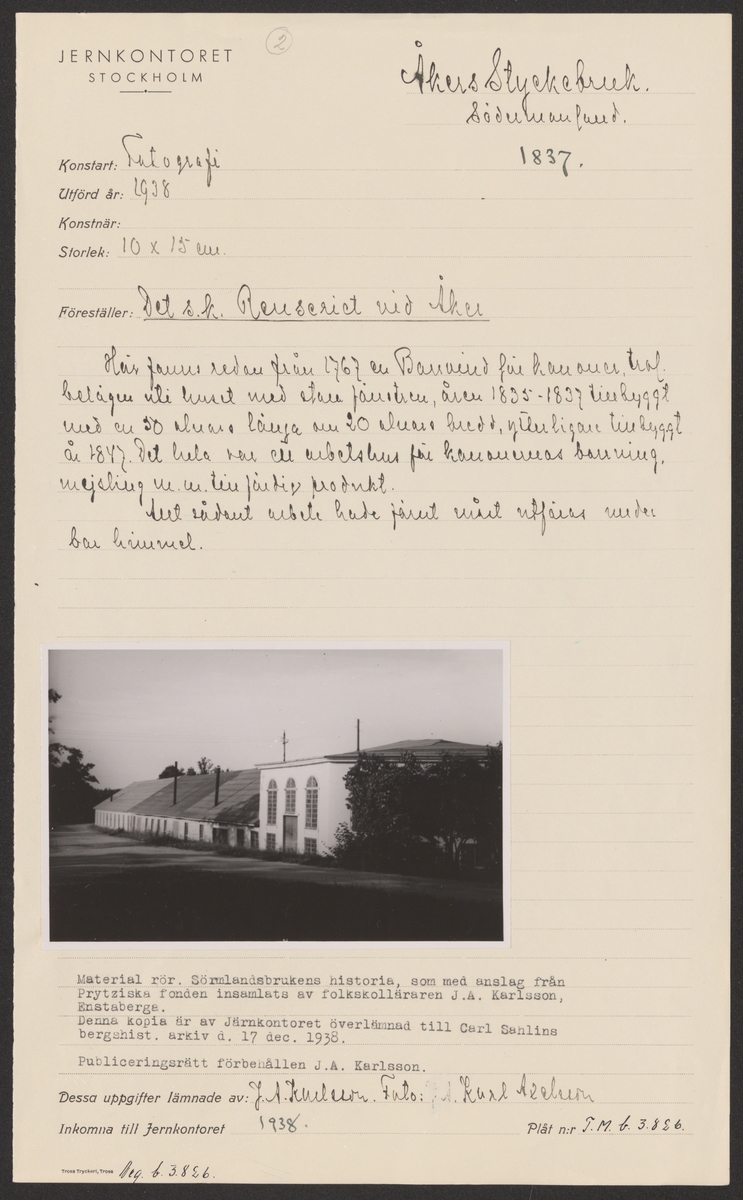 2
JERNKONTORET
STOCKHOLM
Åkers Styckebruk.
Södermanland.
1837.
Konstart: Fotografi
Utförd år: 1938
Konstnär:
Storlek: 10 x 15 cm.
Föreställer: Det s.k. Renseriet vid Åker
Här fanns redan från 1767 en Borrvind för kanoner, trol.
belägen uti huset med stora fönstren, åren 1835-1837 tillbyggt
med en 50 alnars länga om 20 alnars bredd, ytterligare tillbyggt
år 1847. Det hela var ett arbetshus för kanonernas borrning,
mejsling m.m. till färdig produkt.
Allt sådant arbete hade förut måst utföras under
bar himmel.
Material rör. Sörmlandsbrukens historia, som med anslag från
Prytziska fonden insamlats av folkskolläraren J.A. Karlsson,
Enstaberga.
Denna kopia är av Järnkontoret överlämnad till Carl Sahlins
bergshist. arkiv d. 17 dec. 1938.
Publiceringsrätt förbehållen J.A. Karlsson.
Dessa uppgifter lämnade av: J.A. Karlsson. Foto: A. Karl Axelsson
Inkomna till Jernkontoret 1938.
Plåt n:r T.M. b. 3.826.
Trosa Tryckeri, Trosa
Neg. b. 3.826.